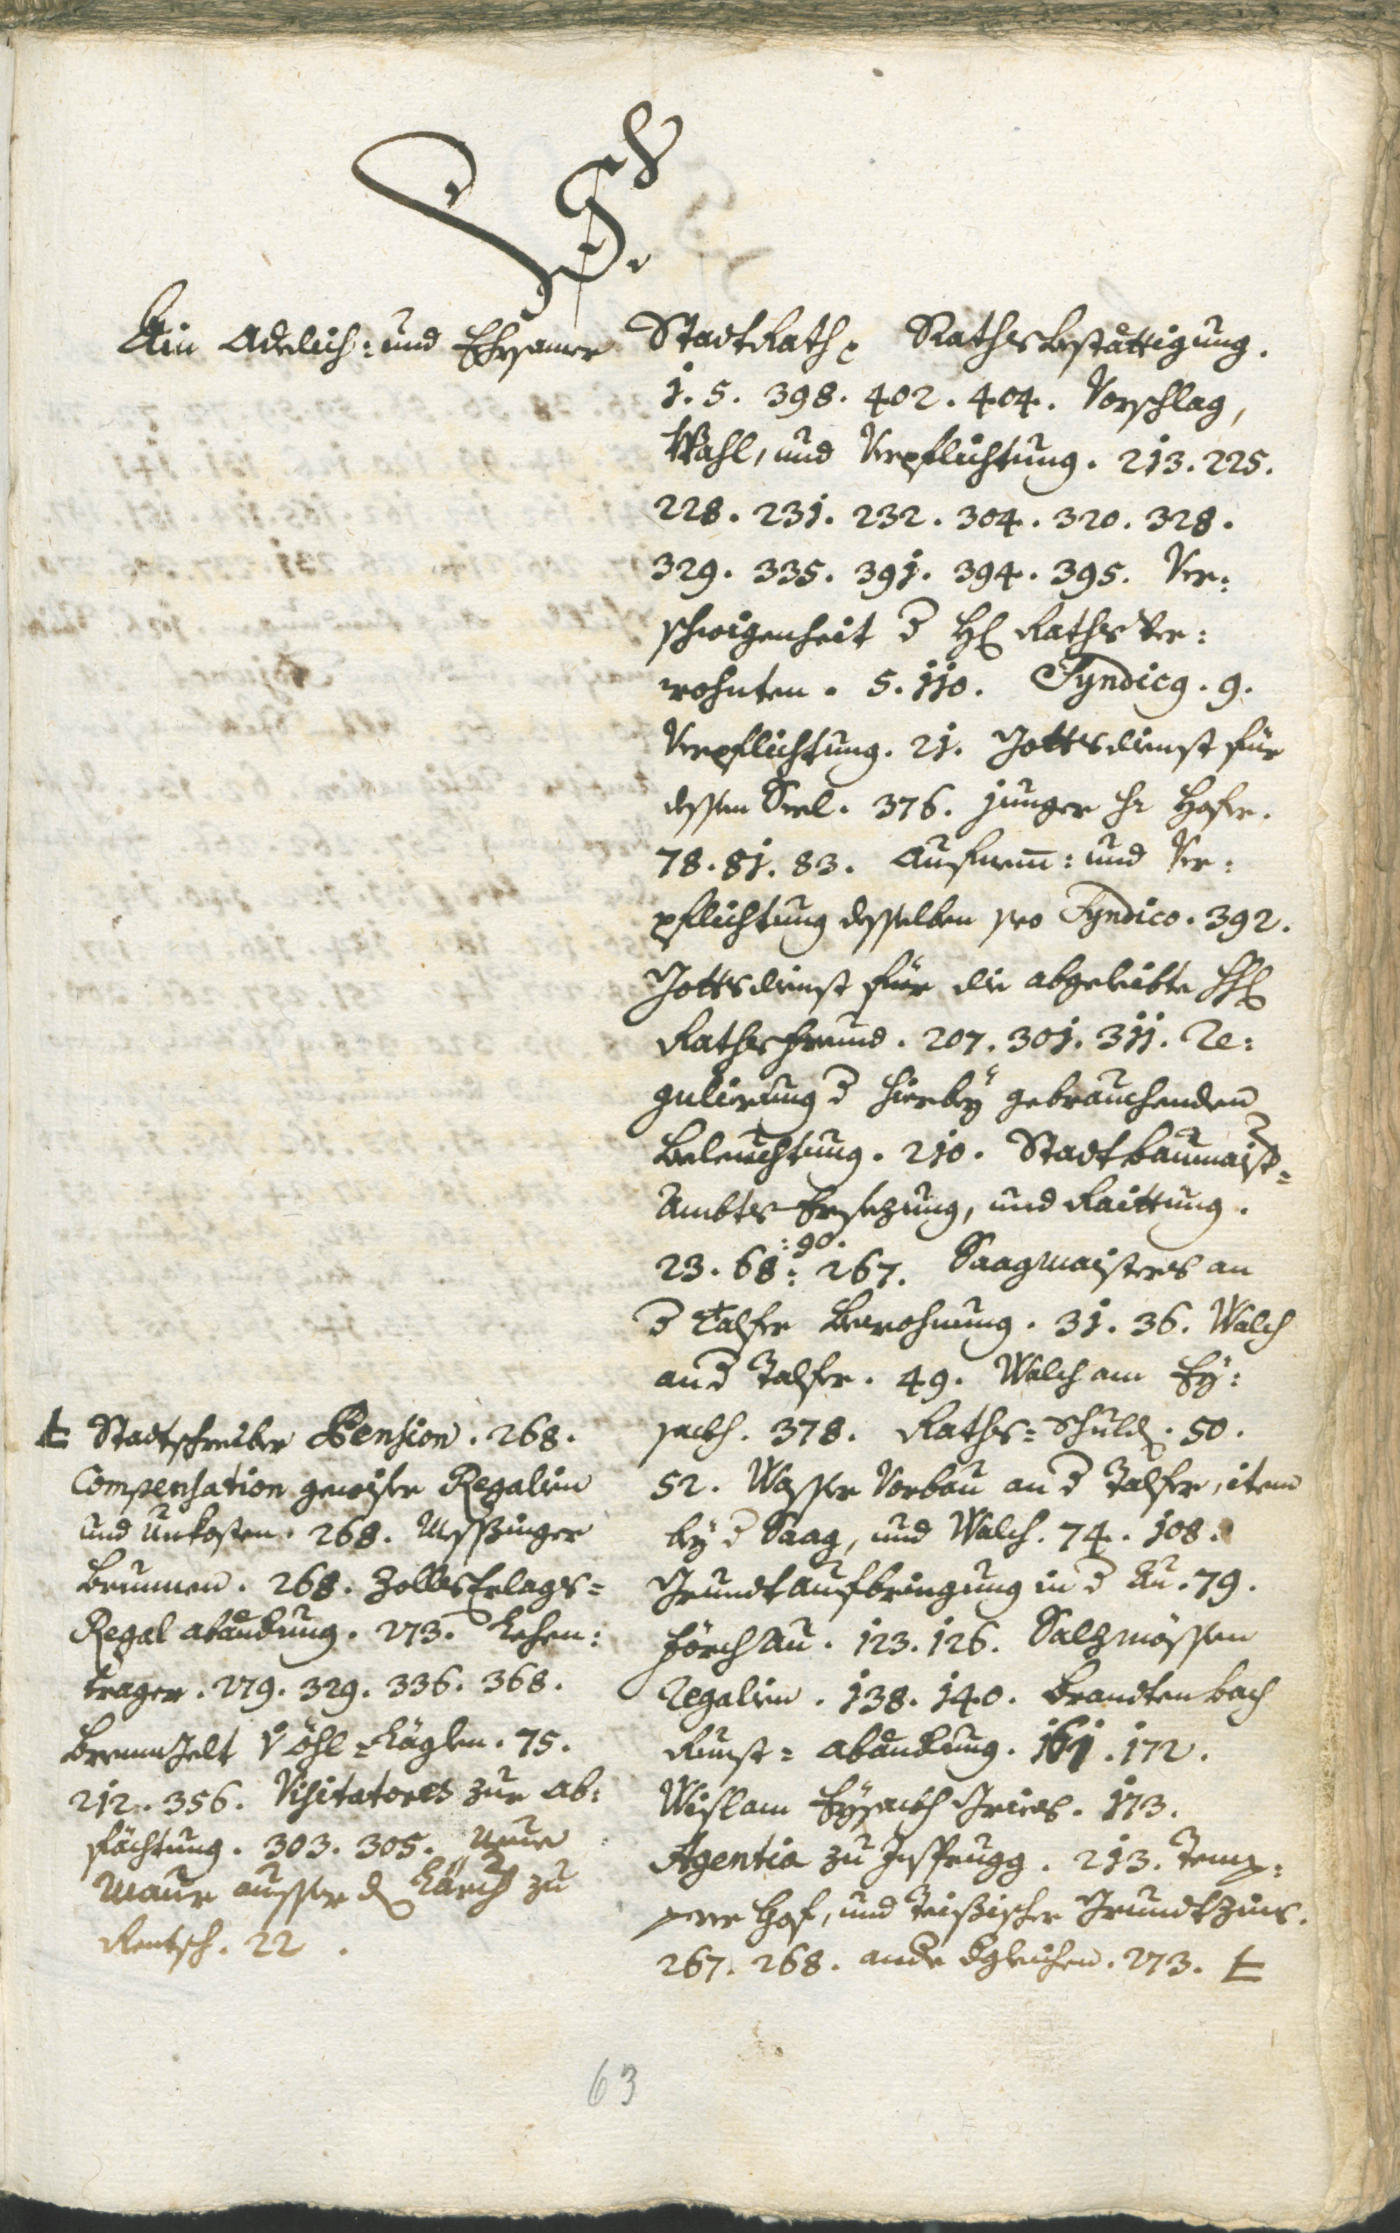 S
Ain Adelich: und Ehrsamer StadtRath, Raths bestättigung.
1. 5. 398. 402. 404. Vorschlag,
Wahl, und Verpflichtung. 213. 225.
228. 231. 232. 304. 320. 328.
329. 335. 391. 394. 395. Ver:
schwigenheit d H Raths Ver:
wohnten. 5. 110. Syndicg. 9.
Verpflichtung. 21. Gottsdienst für
dessen Seel. 376. junger Hr Hofer.
78. 81. 83. Aufnem: und Ver:
pflichtung desselben pro Syndico. 392.
Gottsdienst für die abgeleibte HH
Rathsfreund. 207. 301. 311. Re:
gulierung d hierbey gebrauchenden
Beleuchtung. 210. Stadtbaumaist=
Ambts Ersezung, und Raittung.
23. 68: :90. 267. Saagmaisters an
d Talfer Bewohnung. 31. 36. Walch
an d Talfer. 49. Walch am Ey:
sackh. 378. Raths= Schuld. 50.
52. Wasser Vorbau an d Talfer, item
bey d Saag, und Walch. 74. 108.
Grundt aufbringung in d Au. 79.
förch Au. 123. 126. Salzmössen
Regalien. 138. 140. Brandtenbach
Runst= abandung. 161. 172.
Wisl am Eysackh Gries. 173.
Agentia zu Insprugg. 213. Temp:
Hof, und Grundtzins.
267. 268. ande dgleichen. 273. ⱡ
ⱡ Stadtschreiber Pension. 268.
Compensation gewiser Regalien
und Unkosten. 268. Messinger
Brunnen. 268. Zolls Erlags=
Regal abandung. 273. Lehen:
trager. 279. 329. 336. 368.
Brenn Öhl= Läglen. 75.
212. 356. Visitatores zur ab:
fächtung. 303. 305. Neue
Maur ausser d Kürch zu
Rentsch. 22.
63